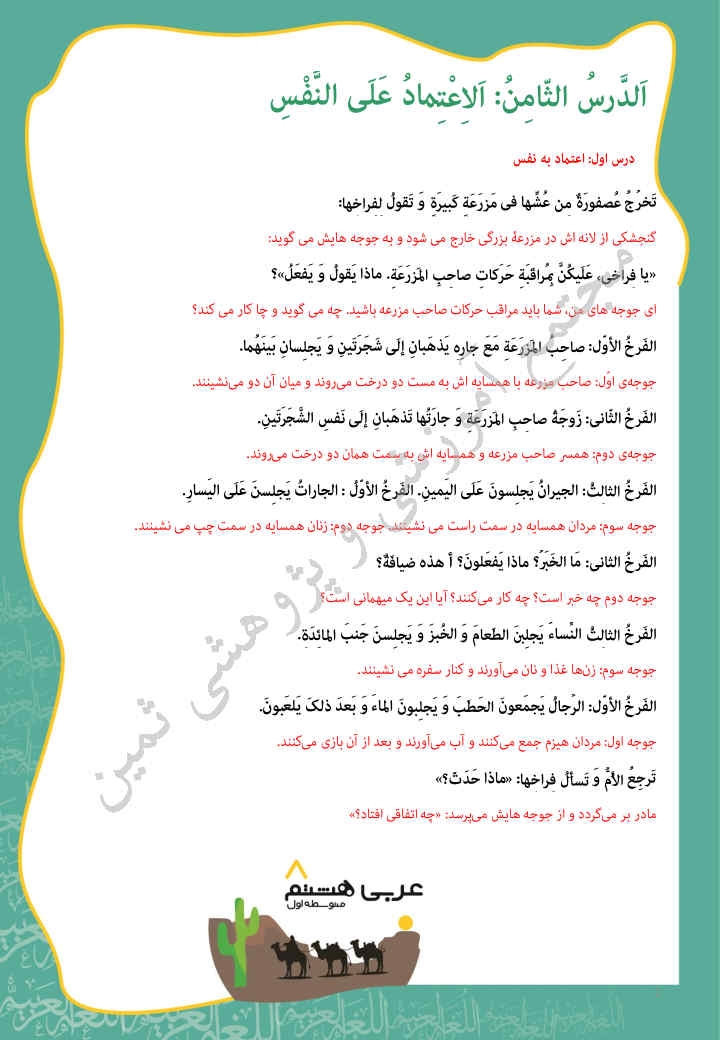 اَلدَّرسُ الثّامِنُ: اَلاِعْتِمادُ عَلَی النَّفْسِ
درس اول: اعتماد به نفس
تَخرَجُ عُصفورَةٌ مِن عُشِّها فی مَزرَعَةٍ کَبیرَةٍ وَ تَقولُ لِفِراخِها:
گنجشکی از لانه اش در مزرعهٔ بزرگی خارج می شود و به جوجه هایش می گوید:
«یا فِراخی، عَلَیکُنَّ بِمُراقَبَةِ حَرَکاتِ صاحِبِ المَزرَعَةِ. ماذا یَقولُ وَ یَفعَلُ»؟
ای جوجه های من، شما باید مراقب حرکات صاحب مزرعه باشید. چه می گوید و چا کار می کند؟
الفَرخُ الأوّل: صاحِبُ المَزرَعَةِ مَعَ جارِه یَذهَبانِ إلَی شَجَرَتَینِ وَ یَجلِسانِ بَینَهُما.
جوجه‌ی اوُل: صاحب مزرعه با همسایه اش به مست دو درخت می‌روند و میان آن دو می‌نشینند.
الفَرخُ الثّانی: زَوجَةُ صاحِبِ المَزرَعَةِ وَ جارَتُها تَذهَبانِ إلَی نَفسِ الشَّجَرَتَینِ.
جوجه‌ی دوم: همسر صاحب مزرعه و همسایه اش به سمت همان دو درخت می‌روند.
الفَرخُ الثالِثُ: الجیرانُ یَجلِسونَ عَلَی الیَمینِ. الفَرخُ الأوّلُ : الجاراتُ یَجلِسنَ عَلَی الیَسارِ.
جوجه سوم: مردان همسایه در سمت راست می نشینند. جوجه دوم: زنان همسایه در سمت چپ می نشینند.
الفَرخُ الثانی: مَا الخَبَرُ؟ ماذا یَفعَلونَ؟ أ هذه ضیافَةٌ؟
جوجه دوم چه خبر است؟ چه کار می‌کنند؟ آیا این یک میهمانی است؟
الفَرخُ الثالِثُ النِّساءَ یَجلِبنَ الطَعامَ وَ الخُبزَ وَ یَجلِسنَ جَنبَ المائِدَةِ.
جوجه سوم: زن‌ها غذا و نان می‌آورند و کنار سفره می نشینند.
الفَرخُ الأوّل: الرِّجالُ یَجمَعونَ الحَطَبَ وَ یَجلِبونَ الماءَ وَ بَعدَ ذلکَ یَلعَبونَ.
جوجه اول: مردان هیزم جمع می‌کنند و آب می‌آورند و بعد از آن بازی می‌کنند.
تَرجِعُ الأمُّ وَ تَسألُ فِراخِها: «ماذا حَدَثَ؟»
مادر بر می‌گردد و از جوجه هایش می‌پرسد: «چه اتفاقی افتاد؟»
مجتمع آموزشی و پژوهشی ثمین
۸
عربی هشتم
متوسطه اول